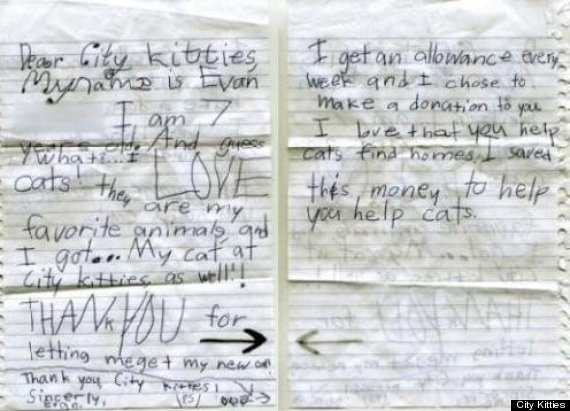 Dear City kitties,
My name is Evan
I am 7
years old. And guess
what!...I LOVE
cats! they are my
favorite animals, and
I got... My cat at
City kitties, as well!!
THANK YOU for
letting me get my new cat
Thank you City kitties!
Sincerly, (PS)
Evan
I get an allowance every
week and I chose to
make a donation to you
I love that you help
cats find homes. I saved
this money to help
you help cats.
City Kitties